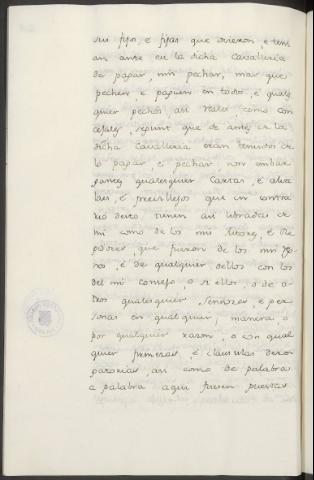 sus fijos, é fijas que ovieron, é teni
an ante en la dicha Cavalleria
de pagar, nin pechar, mas que
pechen é paguen en todos, é quales
quier pechos asi reales como con
cejales, segunt que de antes en la
dicha Cavalleria eran tenudos de
lo pagar, é pechar non embar
gantes qualesquier Cartas, é alva
laes, é previllejos que en contra
rio desto tienen asi libradas de
mi como de los mis tutores, é Re
gidores, que fueron de los mis rey
nos, é de qualquier dellos con los
del mi Consejo, o sin ellos, o de o
tros qualesquier Señores, é per
sonas en qualquier manera, o
por qualquier razon, o con qual
quier firmezas, é clausulas dero
gatorias, asi como de palabra
a palabra aqui fuesen puestas